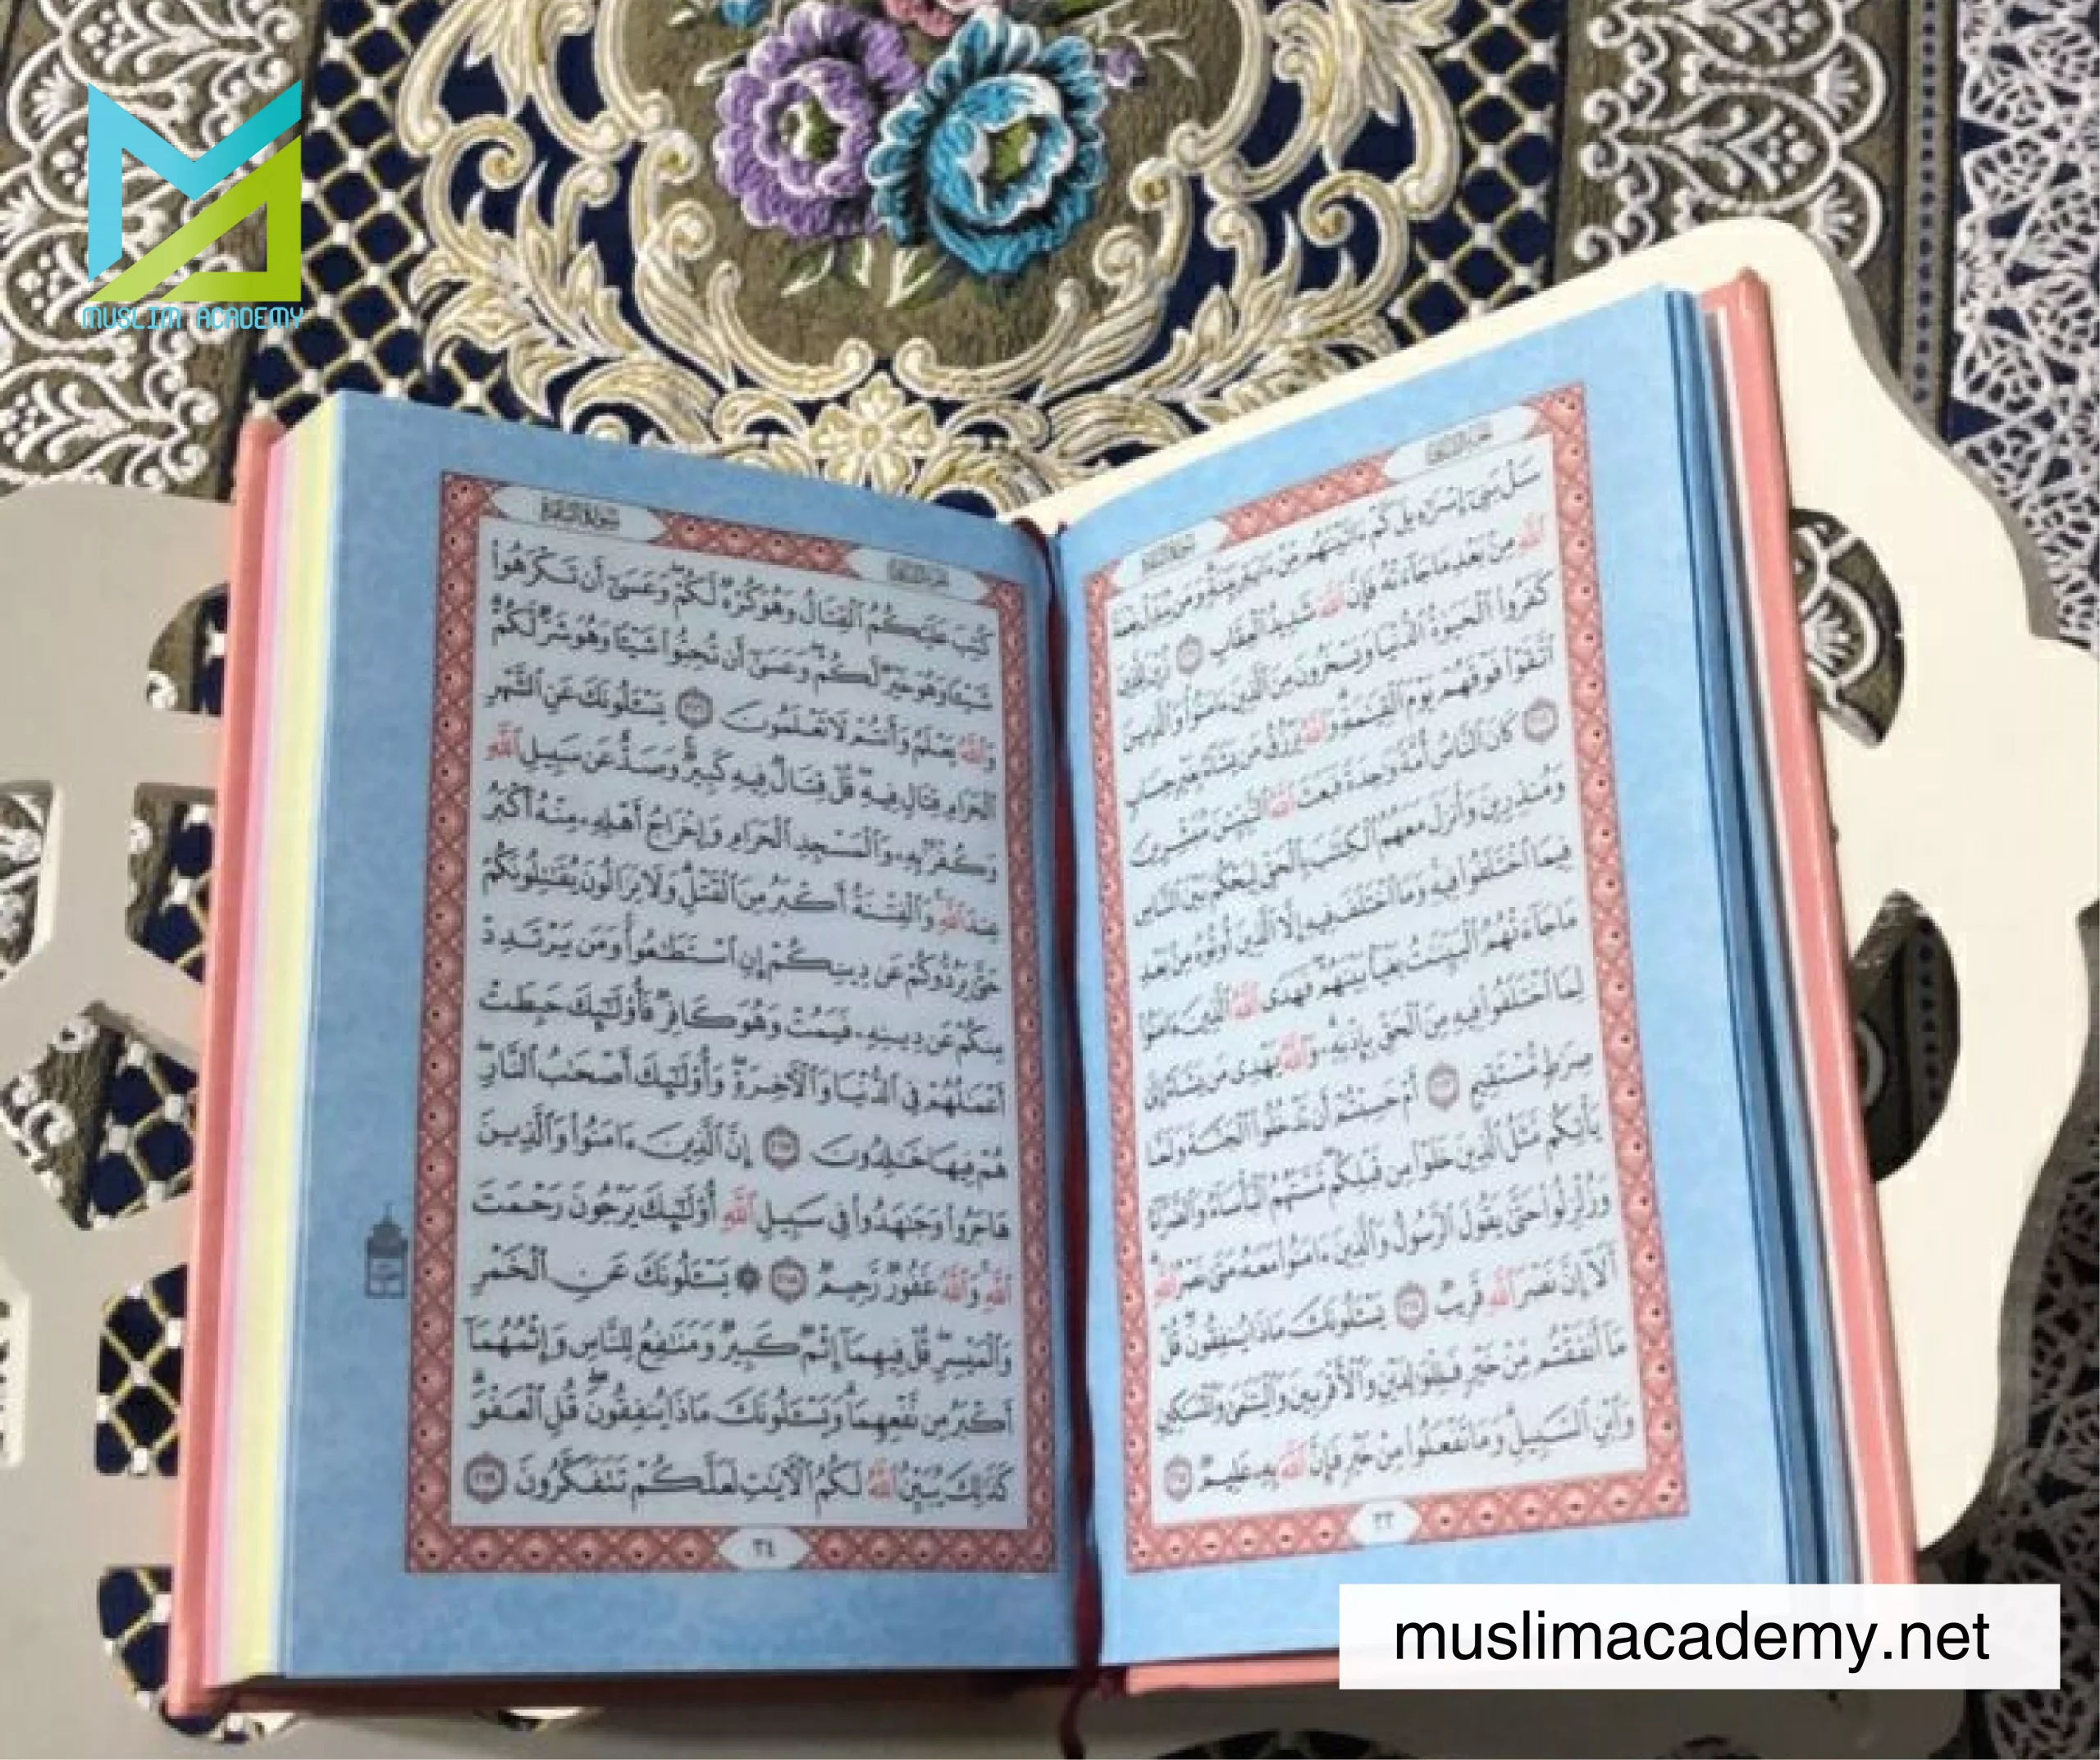 MUSLIM ACADEMY
الجزء الثاني
سورة البقرة
سَلْ بَنِىٓ إِسْرَٰٓءِيلَ كَمْ ءَاتَيْنَٰهُم مِّنْ ءَايَةِۭ بَيِّنَةٍ وَمَن يُبَدِّلْ نِعْمَةَ
ٱللَّهِ مِنۢ بَعْدِ مَا جَآءَتْهُ فَإِنَّ ٱللَّهَ شَدِيدُ ٱلْعِقَابِ ٢١١ زُيِّنَ لِلَّذِينَ
كَفَرُوا۟ ٱلْحَيَوٰةُ ٱلدُّنْيَا وَيَسْخَرُونَ مِنَ ٱلَّذِينَ ءَامَنُوا۟ وَٱلَّذِينَ
ٱتَّقَوْا۟ فَوْقَهُمْ يَوْمَ ٱلْقِيَٰمَةِ وَٱللَّهُ يَرْزُقُ مَن يَشَآءُ بِغَيْرِ حِسَابٍ
٢١٢ كَانَ ٱلنَّاسُ أُمَّةً وَٰحِدَةً فَبَعَثَ ٱللَّهُ ٱلنَّبِيِّـۧنَ مُبَشِّرِينَ
وَمُنذِرِينَ وَأَنزَلَ مَعَهُمُ ٱلْكِتَٰبَ بِٱلْحَقِّ لِيَحْكُمَ بَيْنَ ٱلنَّاسِ
فِيمَا ٱخْتَلَفُوا۟ فِيهِ وَمَا ٱخْتَلَفَ فِيهِ إِلَّا ٱلَّذِينَ أُوتُوهُ مِنۢ بَعْدِ
مَا جَآءَتْهُمُ ٱلْبَيِّنَٰتُ بَغْيًۢا بَيْنَهُمْ فَهَدَى ٱللَّهُ ٱلَّذِينَ ءَامَنُوا۟
لِمَا ٱخْتَلَفُوا۟ فِيهِ مِنَ ٱلْحَقِّ بِإِذْنِهِۦ وَٱللَّهُ يَهْدِى مَن يَشَآءُ إِلَىٰ
صِرَٰطٍ مُّسْتَقِيمٍ ٢١٣ أَمْ حَسِبْتُمْ أَن تَدْخُلُوا۟ ٱلْجَنَّةَ وَلَمَّا
يَأْتِكُم مَّثَلُ ٱلَّذِينَ خَلَوْا۟ مِن قَبْلِكُم مَّسَّتْهُمُ ٱلْبَأْسَآءُ وَٱلضَّرَّآءُ
وَزُلْزِلُوا۟ حَتَّىٰ يَقُولَ ٱلرَّسُولُ وَٱلَّذِينَ ءَامَنُوا۟ مَعَهُۥ مَتَىٰ نَصْرُ ٱللَّهِ
أَلَآ إِنَّ نَصْرَ ٱللَّهِ قَرِيبٌ ٢١٤ يَسْـَٔلُونَكَ مَاذَا يُنفِقُونَ قُلْ
مَآ أَنفَقْتُم مِّنْ خَيْرٍ فَلِلْوَٰلِدَيْنِ وَٱلْأَقْرَبِينَ وَٱلْيَتَٰمَىٰ وَٱلْمَسَٰكِينِ
وَٱبْنِ ٱلسَّبِيلِ وَمَا تَفْعَلُوا۟ مِنْ خَيْرٍ فَإِنَّ ٱللَّهَ بِهِۦ عَلِيمٌ ٢١٥
٣٣
الجزء الثاني
سورة البقرة
كُتِبَ عَلَيْكُمُ ٱلْقِتَالُ وَهُوَ كُرْهٌ لَّكُمْ وَعَسَىٰٓ أَن تَكْرَهُوا۟
شَيْـًٔا وَهُوَ خَيْرٌ لَّكُمْ وَعَسَىٰٓ أَن تُحِبُّوا۟ شَيْـًٔا وَهُوَ شَرٌّ لَّكُمْ
وَٱللَّهُ يَعْلَمُ وَأَنتُمْ لَا تَعْلَمُونَ ٢١٦ يَسْـَٔلُونَكَ عَنِ ٱلشَّهْرِ
ٱلْحَرَامِ قِتَالٍ فِيهِ قُلْ قِتَالٌ فِيهِ كَبِيرٌ وَصَدٌّ عَن سَبِيلِ ٱللَّهِ
وَكُفْرٌۢ بِهِۦ وَٱلْمَسْجِدِ ٱلْحَرَامِ وَإِخْرَاجُ أَهْلِهِۦ مِنْهُ أَكْبَرُ
عِندَ ٱللَّهِ وَٱلْفِتْنَةُ أَكْبَرُ مِنَ ٱلْقَتْلِ وَلَا يَزَالُونَ يُقَٰتِلُونَكُمْ
حَتَّىٰ يَرُدُّوكُمْ عَن دِينِكُمْ إِنِ ٱسْتَطَٰعُوا۟ وَمَن يَرْتَدِدْ
مِنكُمْ عَن دِينِهِۦ فَيَمُتْ وَهُوَ كَافِرٌ فَأُو۟لَٰٓئِكَ حَبِطَتْ
أَعْمَٰلُهُمْ فِى ٱلدُّنْيَا وَٱلْءَاخِرَةِ وَأُو۟لَٰٓئِكَ أَصْحَٰبُ ٱلنَّارِ
هُمْ فِيهَا خَٰلِدُونَ ٢١٧ إِنَّ ٱلَّذِينَ ءَامَنُوا۟ وَٱلَّذِينَ
هَاجَرُوا۟ وَجَٰهَدُوا۟ فِى سَبِيلِ ٱللَّهِ أُو۟لَٰٓئِكَ يَرْجُونَ رَحْمَتَ
ٱللَّهِ وَٱللَّهُ غَفُورٌ رَّحِيمٌ ٢١٨ ۞ يَسْـَٔلُونَكَ عَنِ ٱلْخَمْرِ
وَٱلْمَيْسِرِ قُلْ فِيهِمَآ إِثْمٌ كَبِيرٌ وَمَنَٰفِعُ لِلنَّاسِ وَإِثْمُهُمَآ
أَكْبَرُ مِن نَّفْعِهِمَا وَيَسْـَٔلُونَكَ مَاذَا يُنفِقُونَ قُلِ ٱلْعَفْوَ
كَذَٰلِكَ يُبَيِّنُ ٱللَّهُ لَكُمُ ٱلْءَايَٰتِ لَعَلَّكُمْ تَتَفَكَّرُونَ ٢١٩
٣٤
muslimacademy.net